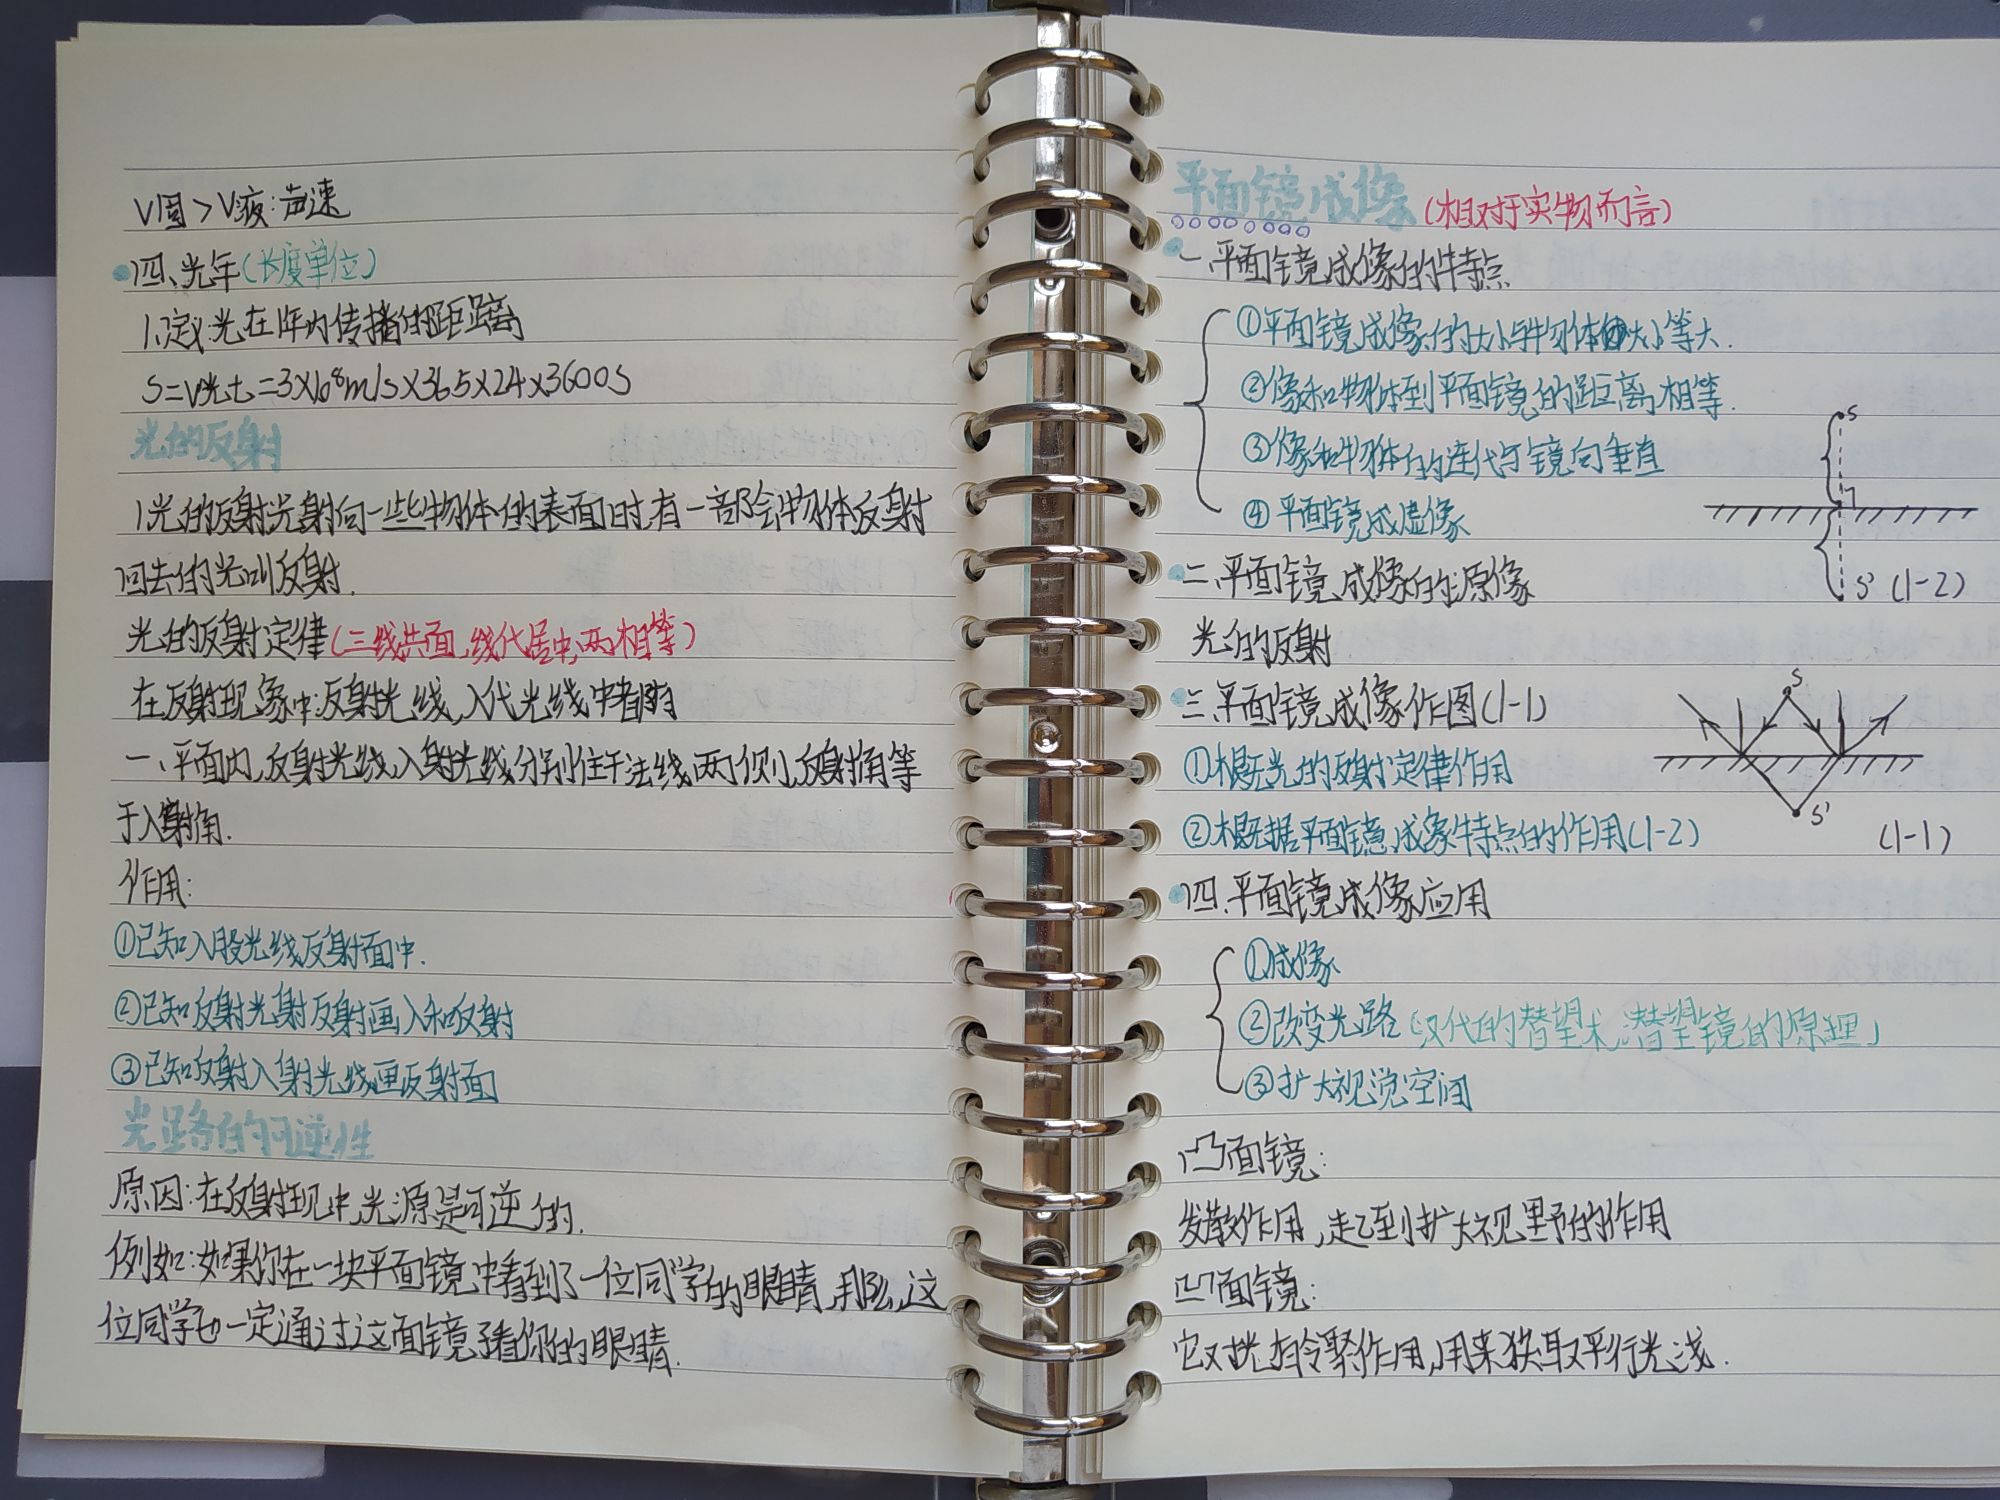 V固>V液:声速
四、光年(长度单位)
1、定义:光在1年内传播的距离
S=V光t=3×10⁸m/s×365×24×3600S
光的反射
1光的反射光射向一些物体的表面时,有一部会物体反射
回去的光叫反射.
光的反射定律(三线共面,线代居中,两相等)
在反射现象中:反射光线,入代光线中都
一、平面内,反射光线,入射光线分别住于法线两侧,反射角等
于入射角.
作用:
①已知入股光线反射面中.
②已知反射光射反射画入和反射
③已知反射入射光线画反射面
光路的可逆性
原因:在反射现中,光源是可逆的.
例如:如果你在一块平面镜中看到了一位同学的眼睛,那么,这
位同学也一定通过这面镜子看你的眼睛.
平面镜成像(相对于实物而言)
一.平面镜成像的特点
①平面镜成像的大小与物体的大小等大.
②像和物体到平面镜的距离相等.
③像和物体的连代于镜向垂直
④平面镜成虚像
S
S' (1-2)
二.平面镜成像的原像
光的反射
三.平面镜成像作图(1-1)
①根无光的反射定律作用
②根据据平面镜成象特点的作用(1-2)
S
S'
(1-1)
四.平面镜成像应用
①成像
②改变光路(汉代的替望术,潜望镜的原理)
③扩大视觉空闭
凸面镜:
发散作用,走乙到扩大视里野的作用
凹面镜:
它对光有令聚作用,用来获取平行光浅.